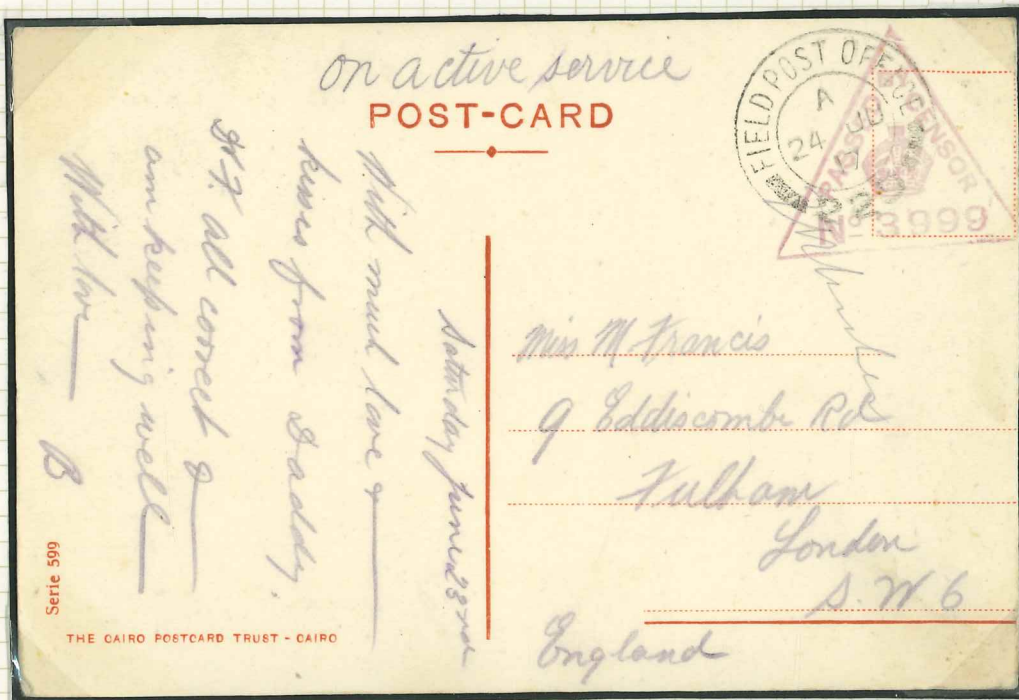 on active service
POST-CARD
FIELD POST OFFICE
A
24 JU
17
PASSED CENSOR
No 3999
Saturday June 23rd
With much love &
kisses from Daddy,
all correct &
am keeping well
With love
B
Miss M Francis
9 Eddiscombe Rd
Fulham
London
S.W 6
England
Serie 599
THE CAIRO POSTCARD TRUST - CAIRO